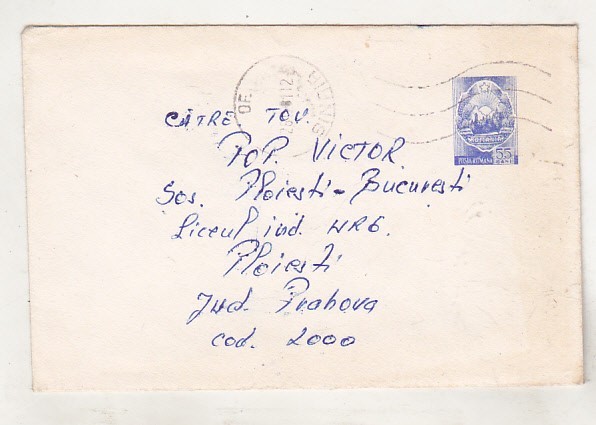 CĂTRE TOV.
POP. VICTOR
Sos. Ploiesti - Bucuresti
Liceul ind. NR6.
Ploiesti
Jud. Prahova
cod. 2000
POSTA ROMANA 55 BANI